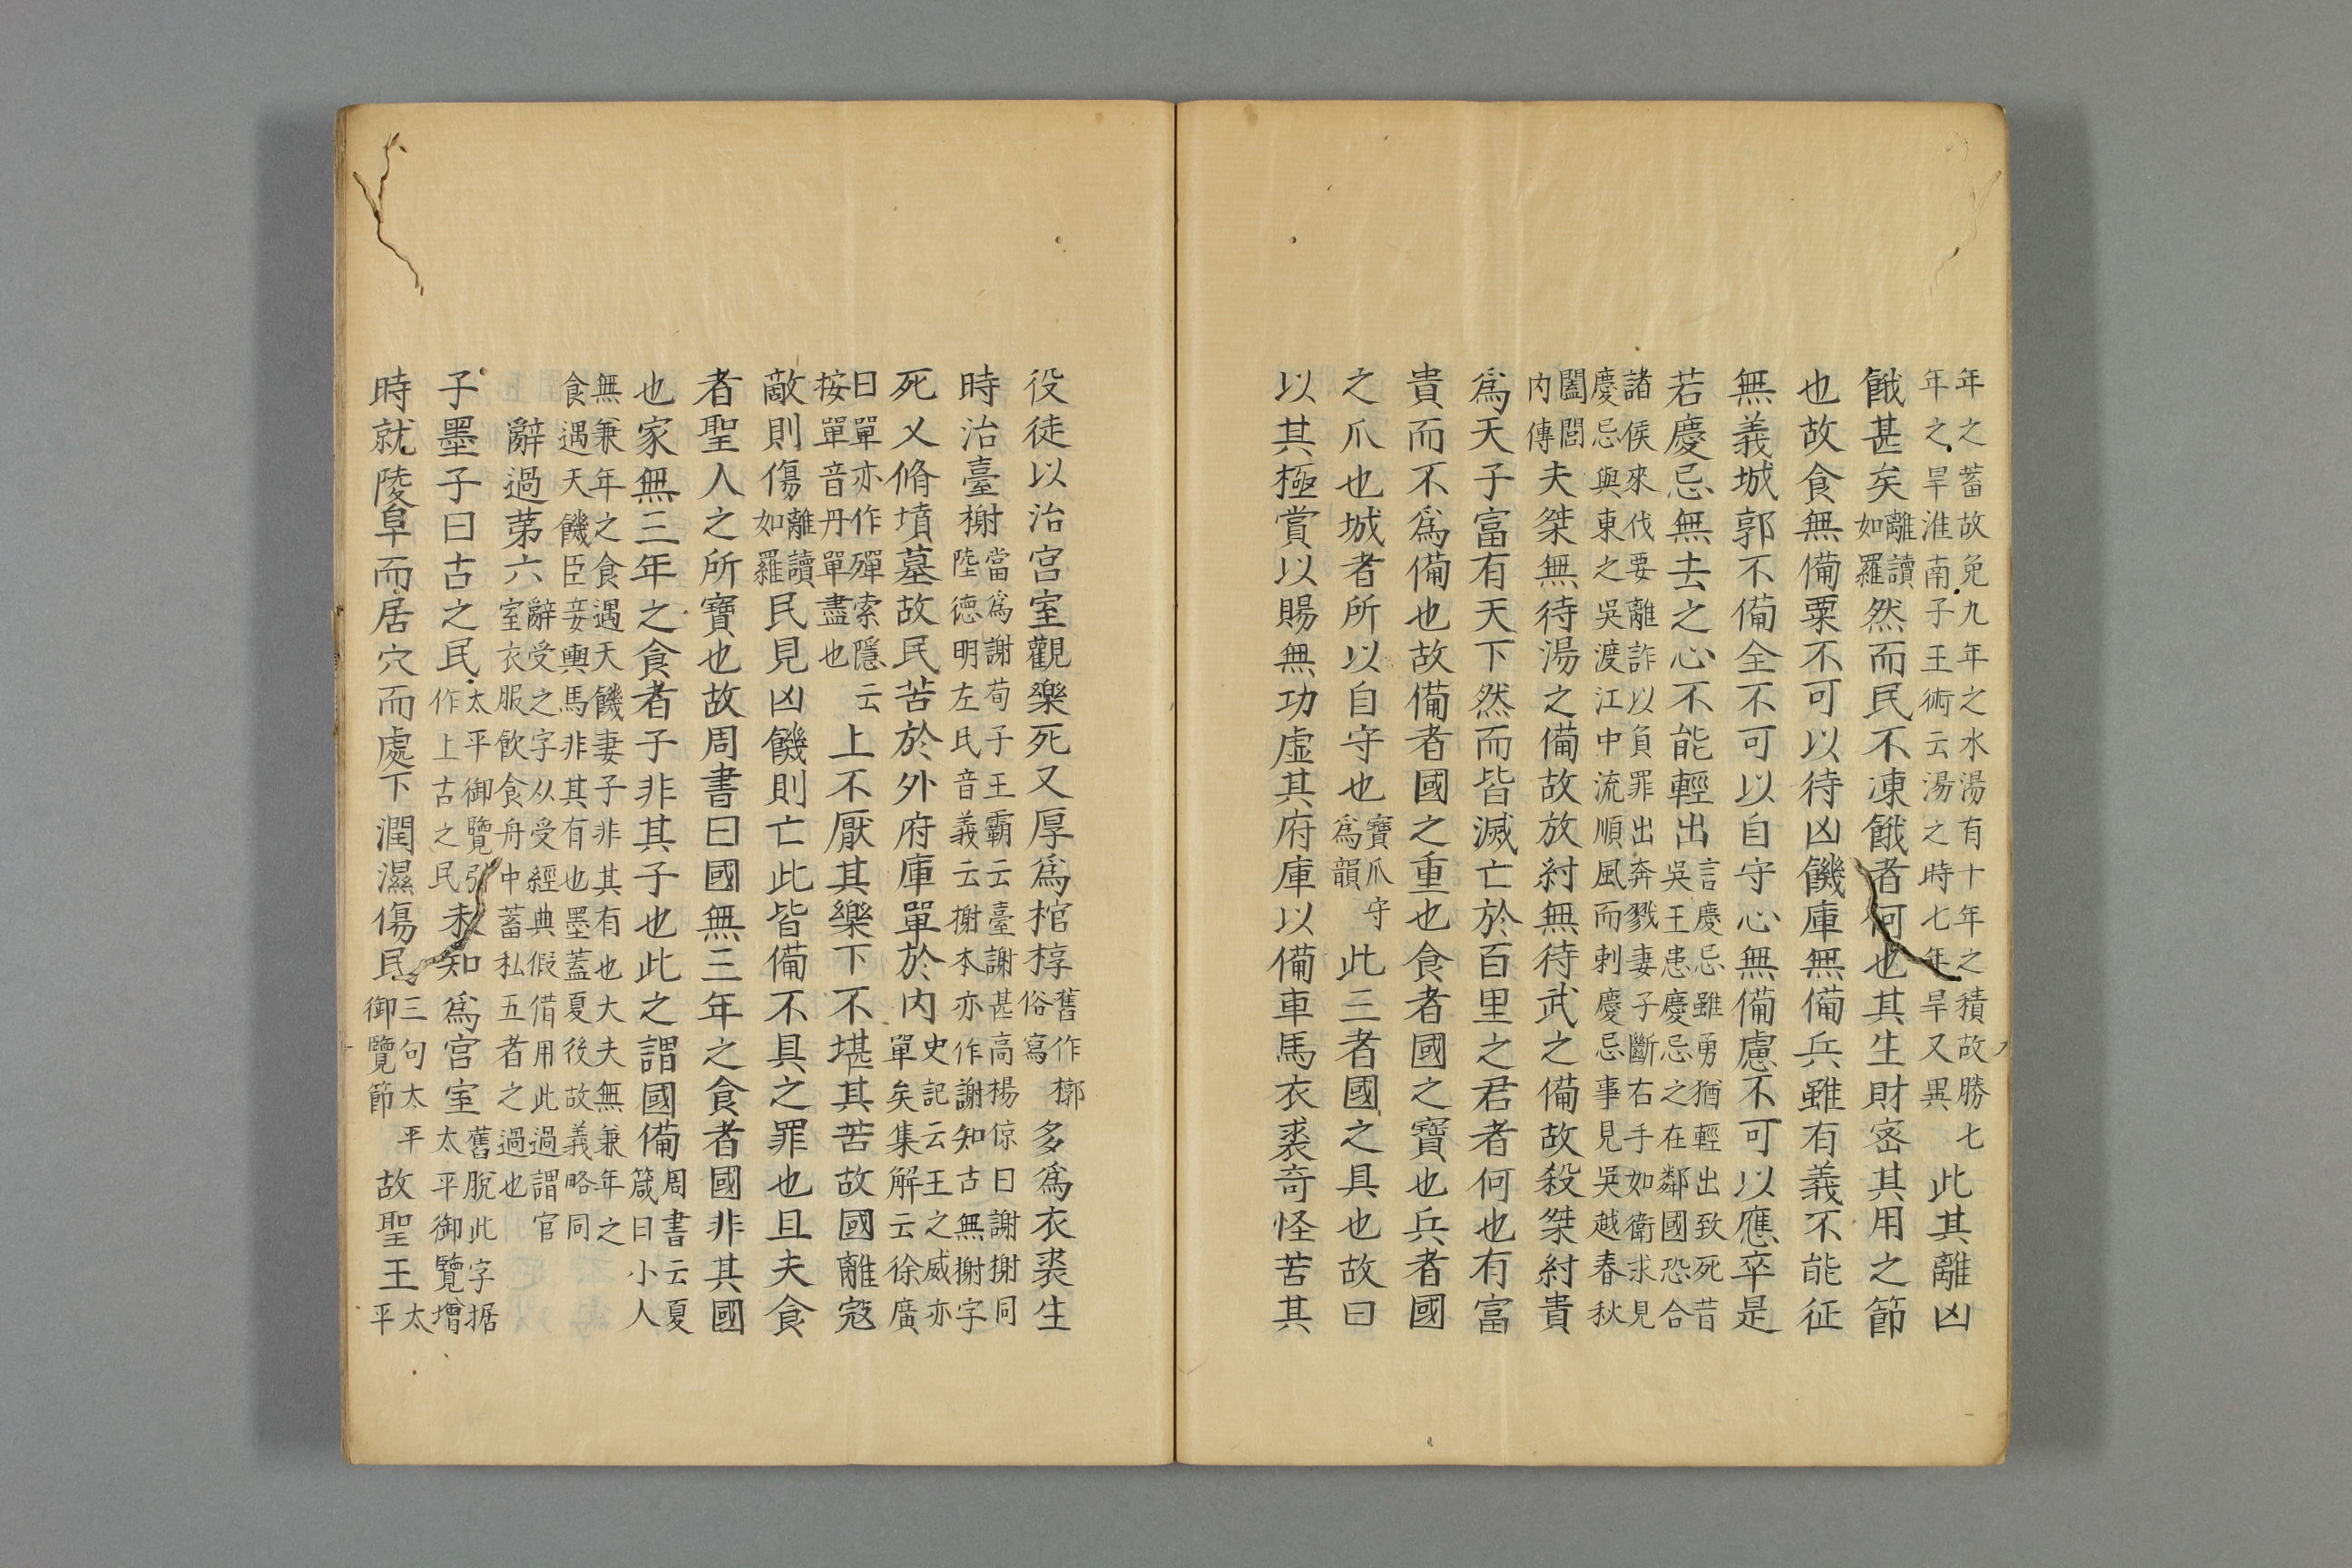 年之蓄故免九年之水湯有十年之積故勝七
年之旱淮南子王術云湯之時七年旱又異
此其離凶
餓甚矣
離讀
如羅
然而民不凍餓者何也其生財密其用之節
也故食無備粟不可以待凶饑庫無備兵雖有義不能征
無義城郭不備全不可以自守心無備慮不可以應卒是
若慶忌無去之心不能輕出
言慶忌雖勇猶輕出致死昔
吳王患慶忌之在鄰國恐合
諸侯來伐要離詐以負罪出奔戮妻子斷右手如衛求見
慶忌與東之吳渡江中流順風而刺慶忌事見吳越春秋
闔閭
内傳
夫桀無待湯之備故放紂無待武之備故殺桀紂貴
爲天子富有天下然而皆滅亡於百里之君者何也有富
貴而不爲備也故備者國之重也食者國之寶也兵者國
之爪也城者所以自守也
寶爪守
爲韻
此三者國之具也故曰
以其極賞以賜無功虛其府庫以備車馬衣裘奇怪苦其
役徒以治宮室觀樂死又厚爲棺椁
舊作槨
俗寫
多爲衣裘生
時治臺榭
當爲謝荀子王霸云臺謝甚高楊倞曰謝榭同
陸德明左氏音義云榭本亦作謝知古無榭字
死又脩墳墓故民苦於外府庫單於内
史記云王之威亦
單矣集解云徐廣
曰單亦作殫索隱云
按單音丹單盡也
上不厭其樂下不堪其苦故國離寇
敵則傷
離讀
如羅
民見凶饑則亡此皆備不具之罪也且夫食
者聖人之所寶也故周書曰國無三年之食者國非其國
也家無三年之食者子非其子也此之謂國備
周書云夏
箴曰小人
無兼年之食遇天饑妻子非其有也大夫無兼年之
食遇天饑臣妾輿馬非其有也墨蓋夏後故義略同
辭過第六
辭受之字从受經典假借用此過謂宫
室衣服飲食舟中蓄私五者之過也
子墨子曰古之民
太平御覽引
作上古之民
未知爲宮室
舊脫此字据
太平御覽增
時就陵阜而居穴而處下潤濕傷民
三句太平
御覽節
故聖王
太
平